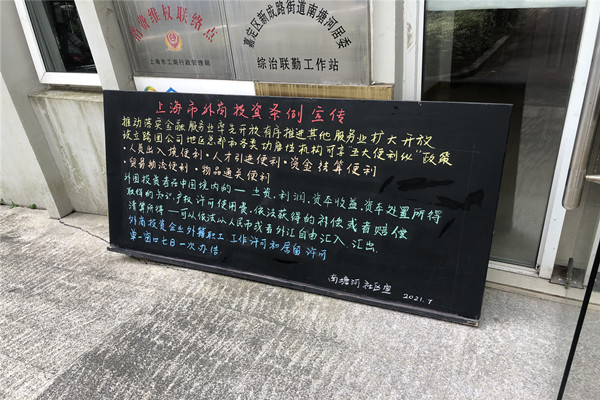 消费维权联络点
上海市工商行政管理局
嘉定区新成路街道南塘河居委
综治联勤工作站
上海市外商投资条例宣传
推动落实金融服务业率先开放有序推进其他服务业扩大开放
设立跨国公司地区总部和各类功能性机构可享"五大便利化"政策
·人员出入境便利·人才引进便利·资金结算便利
·贸易物流便利·物品通关便利
外国投资者在中国境内的——出资、利润、资本收益、资本处置所得
取得的知识产权许可使用费、依法获得的补偿或者赔偿
清算所得——可以依法以人民币或者外汇自由汇入、汇出.
外商投资企业外籍职工 工作许可和居留许可
单一窗口七日一次办结
南塘河社区宣
2021.7